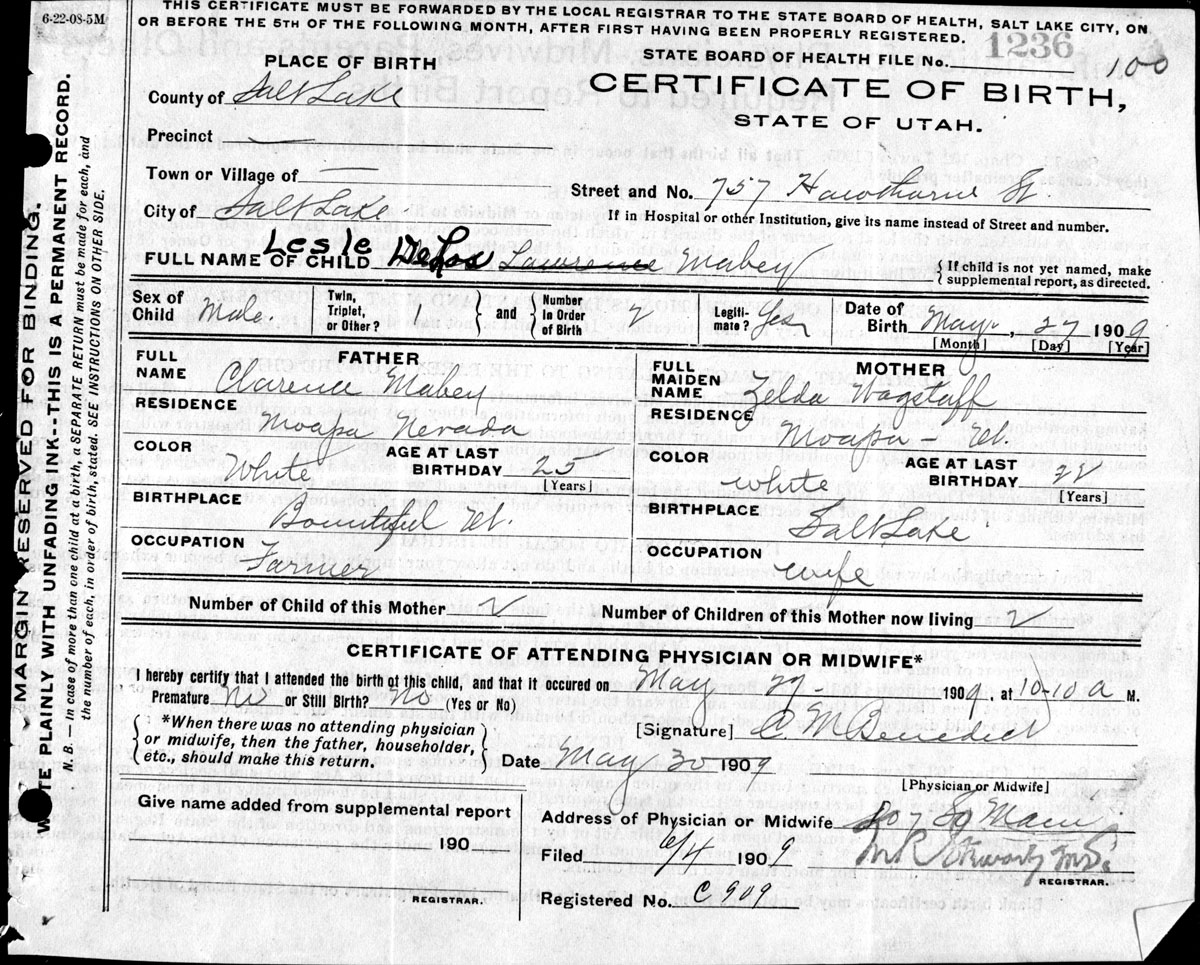 6-22-08-5M
THIS CERTIFICATE MUST BE FORWARDED BY THE LOCAL REGISTRAR TO THE STATE BOARD OF HEALTH, SALT LAKE CITY, ON
OR BEFORE THE 5TH OF THE FOLLOWING MONTH, AFTER FIRST HAVING BEEN PROPERLY REGISTERED. 1236
STATE BOARD OF HEALTH FILE No. 100
PLACE OF BIRTH
CERTIFICATE OF BIRTH,
STATE OF UTAH.
County of Salt Lake
Precinct —
Town or Village of —
Street and No. 757 Hawthorne St.
City of Salt Lake
If in Hospital or other Institution, give its name instead of Street and number.
Leslie
FULL NAME OF CHILD DeLos Lawrence Mabey
{ If child is not yet named, make
supplemental report, as directed.
Sex of Child Male
Twin, Triplet, or Other? 1 } and { Number in Order of Birth 2
Legitimate? Yes
Date of Birth May, 27 1909
[Month] [Day] [Year]
FATHER
FULL NAME Clarence Mabey
RESIDENCE Moapa Nevada
COLOR White
AGE AT LAST BIRTHDAY
[Years]
BIRTHPLACE Bountiful Ut.
OCCUPATION Farmer
MOTHER
FULL MAIDEN NAME Zelda Wagstaff
RESIDENCE Moapa — Ut.
COLOR white
AGE AT LAST BIRTHDAY
[Years]
BIRTHPLACE Salt Lake
OCCUPATION wife
Number of Child of this Mother 2
Number of Children of this Mother now living 2
CERTIFICATE OF ATTENDING PHYSICIAN OR MIDWIFE*
I hereby certify that I attended the birth of this child, and that it occured on May 1909, at 10-10 a M.
Premature No or Still Birth? No (Yes or No)
{ *When there was no attending physician
or midwife, then the father, householder,
etc., should make this return. }
[Signature] C. M Benedict
Date May 30 1909
[Physician or Midwife]
Give name added from supplemental report
190
REGISTRAR.
Address of Physician or Midwife So Main
Filed 6/4 1909
REGISTRAR.
Registered No. C 909
MARGIN RESERVED FOR BINDING.
WRITE PLAINLY WITH UNFADING INK--THIS IS A PERMANENT RECORD.
N. B. — In case of more than one child at a birth, a SEPARATE RETURN must be made for each, and
the number of each, in order of birth, stated. SEE INSTRUCTIONS ON OTHER SIDE.